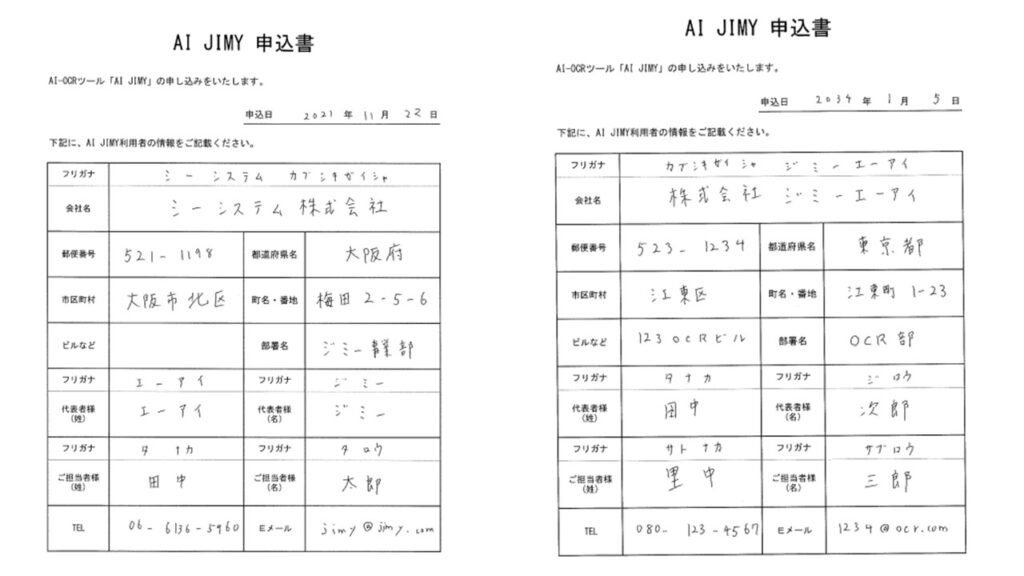 AI JIMY 申込書
AI-OCRツール「AI JIMY」の申し込みをいたします。
申込日 2021 年 11 月 22 日
下記に、AI JIMY利用者の情報をご記載ください。
フリガナ シーシステム カブシキガイシャ
会社名 シーシステム 株式会社
郵便番号 521-1198 都道府県名 大阪府
市区町村 大阪市北区 町名・番地 梅田 2-5-6
ビルなど 部署名 ジミー事業部
フリガナ エーアイ フリガナ ジミー
代表者様(姓) エーアイ 代表者様(名) ジミー
フリガナ タナカ フリガナ タロウ
ご担当者様(姓) 田中 ご担当者様(名) 太郎
TEL 06-6136-5960 Eメール jimy@jimy.com
AI JIMY 申込書
AI-OCRツール「AI JIMY」の申し込みをいたします。
申込日 2034 年 1 月 5 日
下記に、AI JIMY利用者の情報をご記載ください。
フリガナ カブシキガイシャ ジミーエーアイ
会社名 株式会社 ジミーエーアイ
郵便番号 523-1234 都道府県名 東京都
市区町村 江東区 町名・番地 江東町 1-23
ビルなど 123 OCRビル 部署名 OCR部
フリガナ タナカ フリガナ ジロウ
代表者様(姓) 田中 代表者様(名) 次郎
フリガナ サトナカ フリガナ サブロウ
ご担当者様(姓) 里中 ご担当者様(名) 三郎
TEL 080-123-4567 Eメール 1234@ocr.com